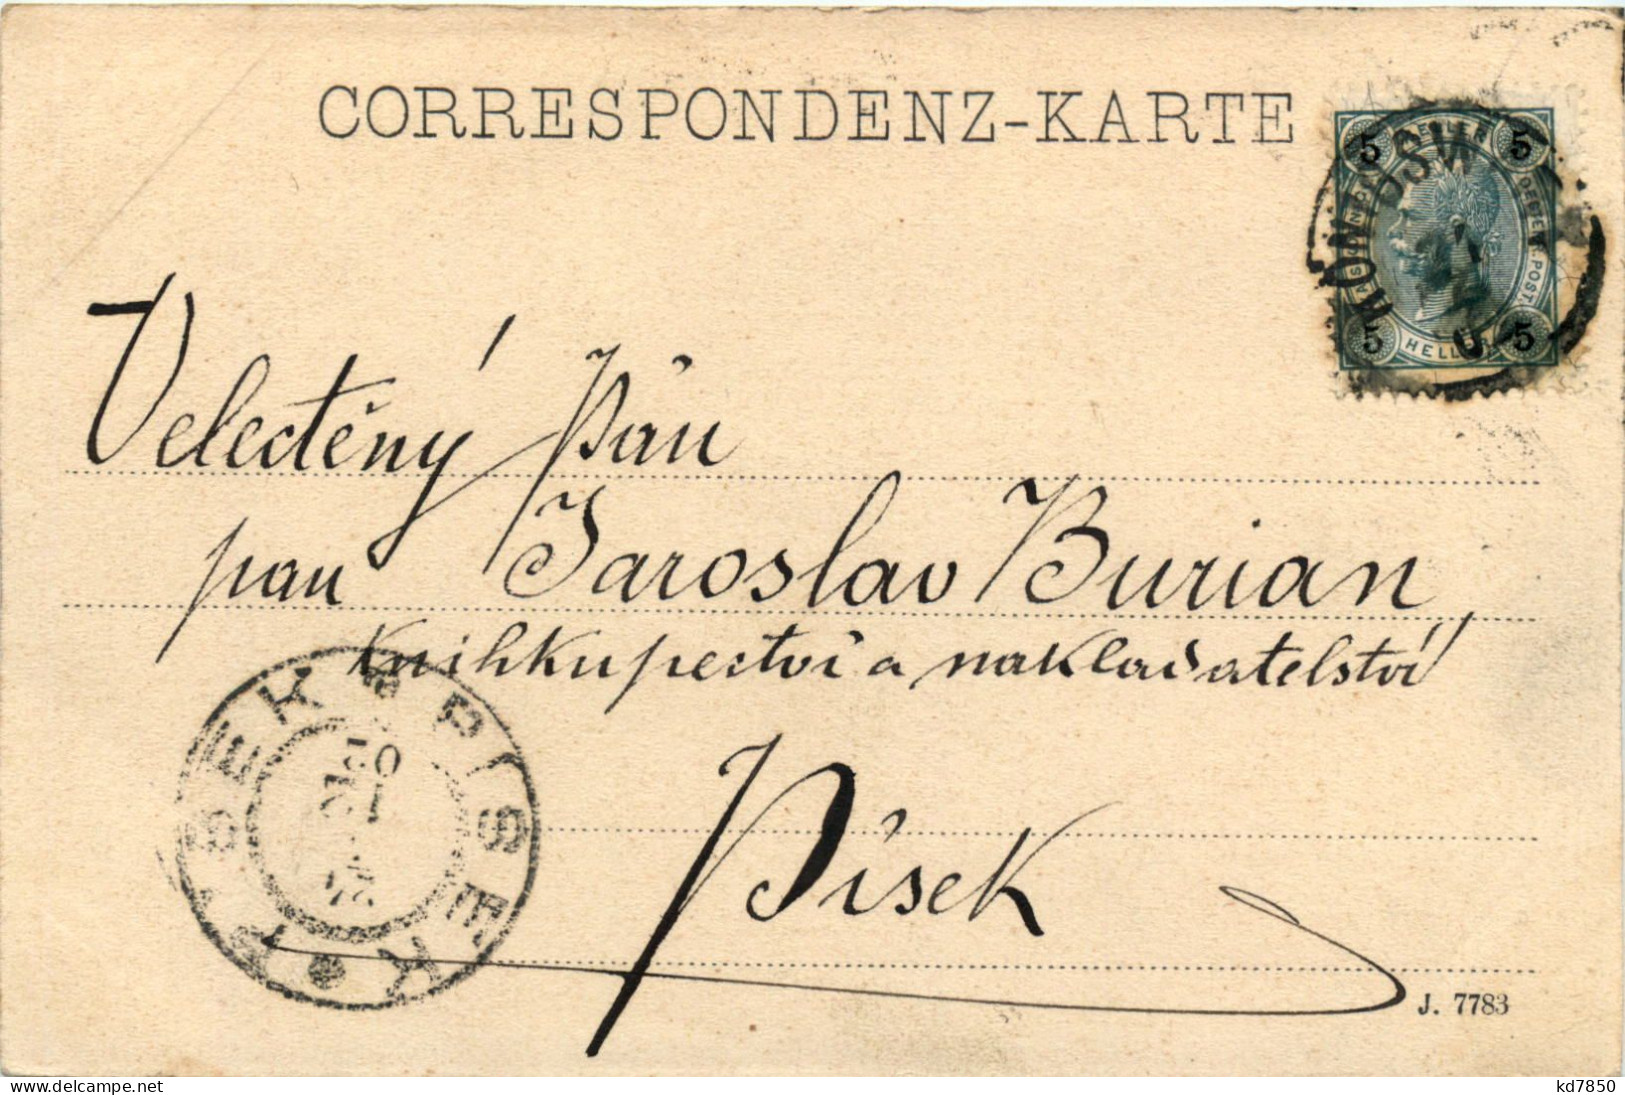 CORRESPONDENZ-KARTE
5 HELLER 5
5 HELLER 5
Velectěný Pán
pan Jaroslav Burian
Knihkupectví a nakladatelství
Písek
PISEK
PÍSEK
J. 7783
delcampe.net
kd7850